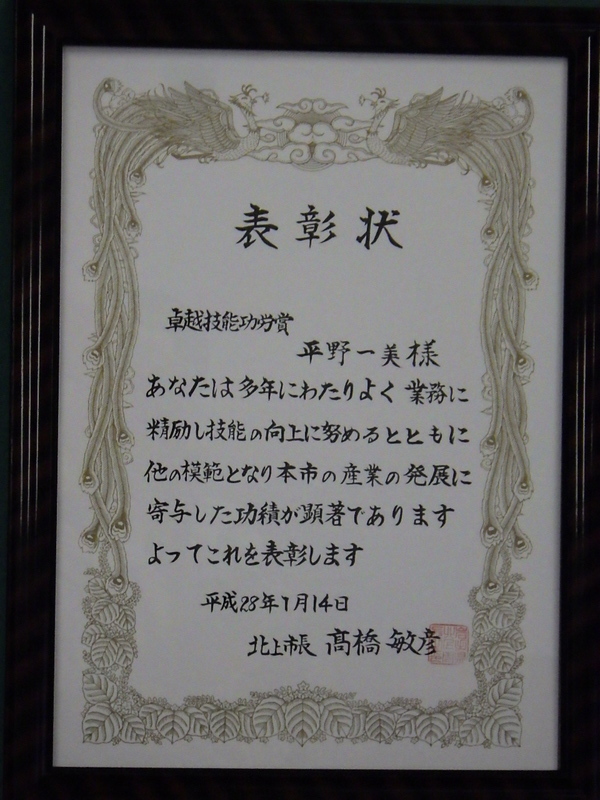 表彰状
卓越技能功労賞
平野一美様
あなたは多年にわたりよく業務に
精励し技能の向上に努めるとともに
他の模範となり本市の産業の発展に
寄与した功績が顕著であります
よってこれを表彰します
平成28年1月14日
北上市長 髙橋敏彦